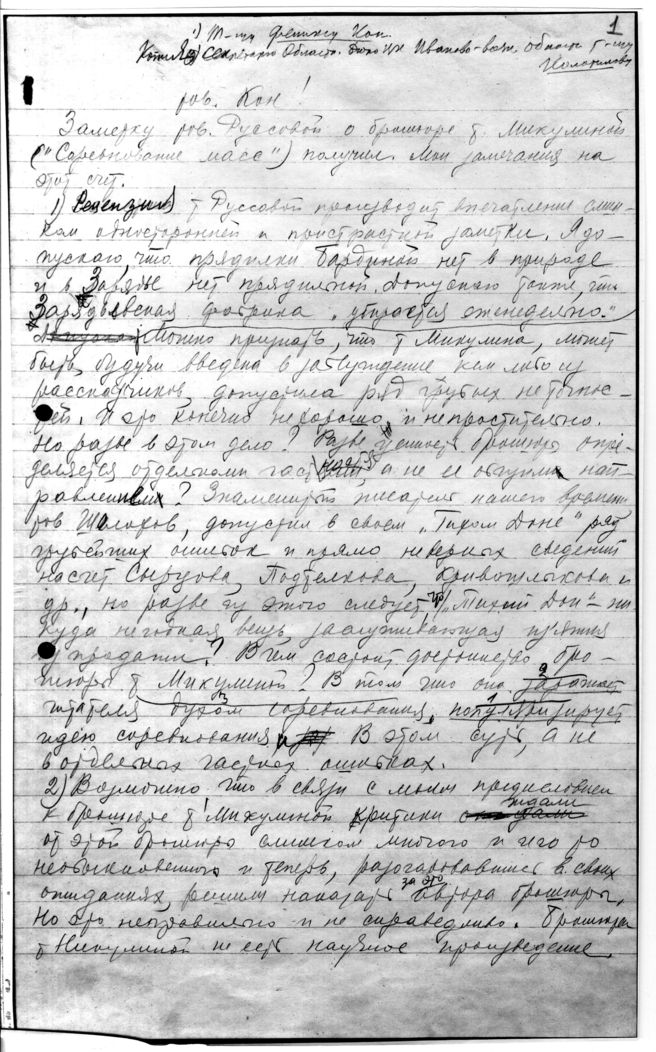 1
1) Т-щу Феликсу Кон.
Копия секретарю Област. бюро ЦК Иваново-Возн. области т-щу
Колотилову
Тов. Кон!
Заметку тов. Руссовой о брошюре т. Микулиной
("Соревнование масс") получил. Мои замечания на
этот счет.
1) Рецензия т Руссовой производит впечатление слиш-
ком односторонней и пристрастной заметки. Я до-
пускаю, что прядилки Бардиной нет в природе
и в Зарядье нет прядильной. Допускаю также, что
Зарядьевская фабрика "убирается еженедельно."
Можно признать, что т Микулина, может
быть, будучи введена в заблуждение кем либо из
рассказчиков, допустила ряд грубых неточнос-
тей. И это конечно нехорошо и непростительно.
Но разве в этом дело? Разве ценность брошюры опре-
деляется отдельными частностями, а не ее общим нап-
равлением? Знаменитый писатель нашего времени
тов Шолохов, допустил в своем "Тихом Доне" ряд
грубейших ошибок и прямо неверных сведений
насчет Сырцова, Подтелкова, Кривошлыкова и
др., но разве из этого следует, что "Тихий Дон" – ни-
куда негодная вещь, заслуживающая изъятия
из продажи? В чем состоит достоинство бро-
шюры т Микулиной? В том что она заражает
читателя духом соревнования, популяризирует
идею соревнования и В этом суть, а не
в отдельных частных ошибках.
2) Возможно что в связи с моим предисловием
к брошюре т Микулиной критики ждали
от этой брошюры слишком многого и чего то
необыкновенного и теперь, разочаровавшись в своих
ожиданиях, решили наказать за это автора брошюры.
Но это неправильно и не справедливо. Брошюра
т Микулиной не есть научное произведение.